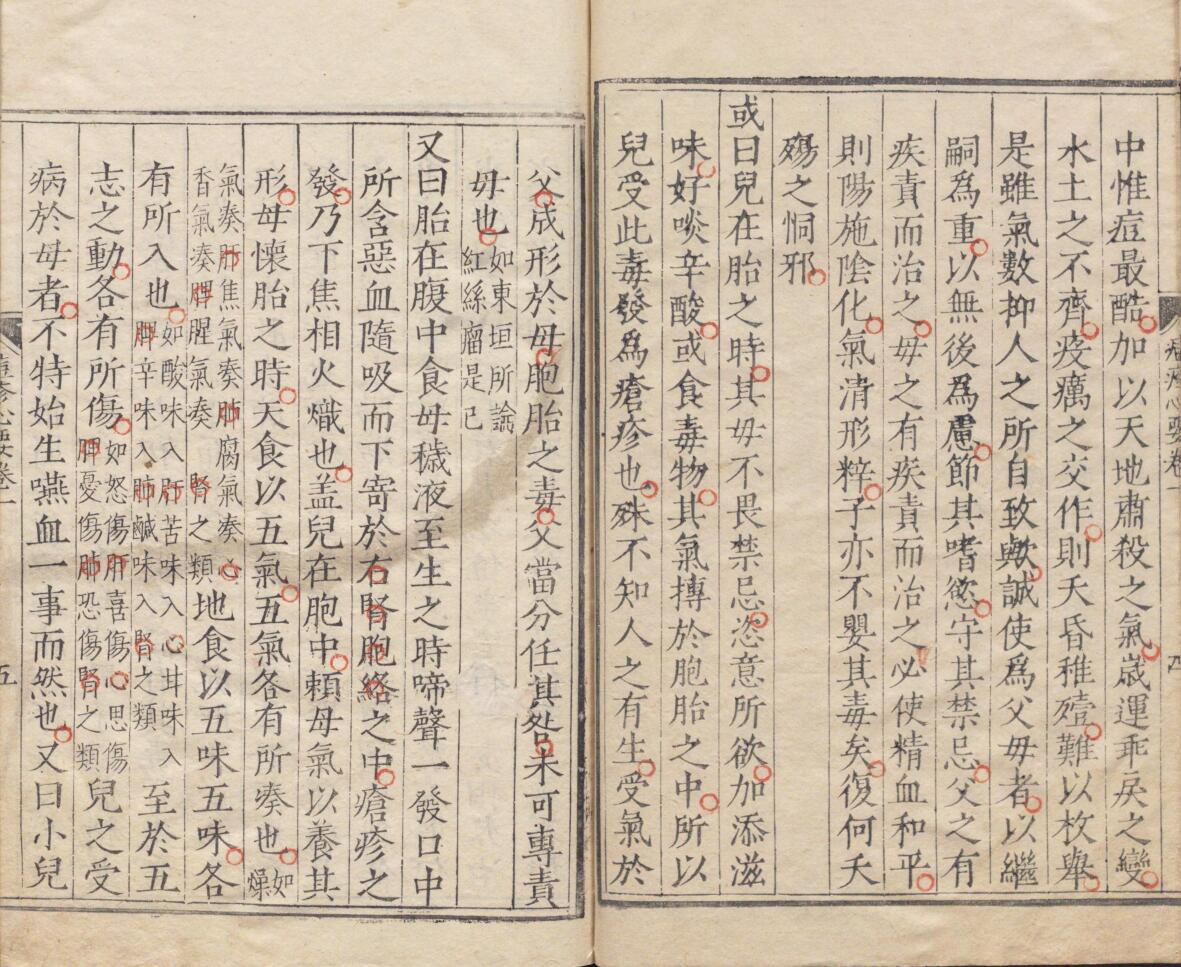 中惟痘最酷加以天地肅殺之氣歲運乖戾之變
水土之不齊疫癘之交作則夭昏稚殪難以枚舉
是雖氣數抑人之所自致歟誠使爲父毋者以繼
嗣爲重以無後爲慮節其嗜慾守其禁忌父之有
疾責而治之毋之有疾責而治之必使精血和平
則陽施陰化氣清形粹子亦不嬰其毒矣復何夭
殤之恫邪
或曰兒在胎之時其毋不畏禁忌恣意所欲加添滋
味好啖辛酸或食毒物其氣摶於胞胎之中所以
兒受此毒發爲瘡疹也殊不知人之有生受氣於
父成形於母胞胎之毒父當分任其咎未可專責
毋也如東垣所論
紅絲瘤是已
又曰胎在腹中食母穢液至生之時啼聲一發口中
所含惡血隨吸而下寄於右腎胞絡之中瘡疹之
發乃下焦相火熾也盖兒在胞中賴母氣以養其
形母懷胎之時天食以五氣五氣各有所凑也如
燥
氣凑肝焦氣凑肺腐氣凑心
香氣凑脾腥氣凑 腎之類地食以五味五味各
有所入也如酸味入肝苦味入心甘味入
脾辛味入肺鹹味入腎之類至於五
志之動各有所傷如怒傷肝喜傷心思傷
脾憂傷肺恐傷腎之類兒之受
病於母者不特始生嚥血一事而然也又曰小兒
心要卷一
五